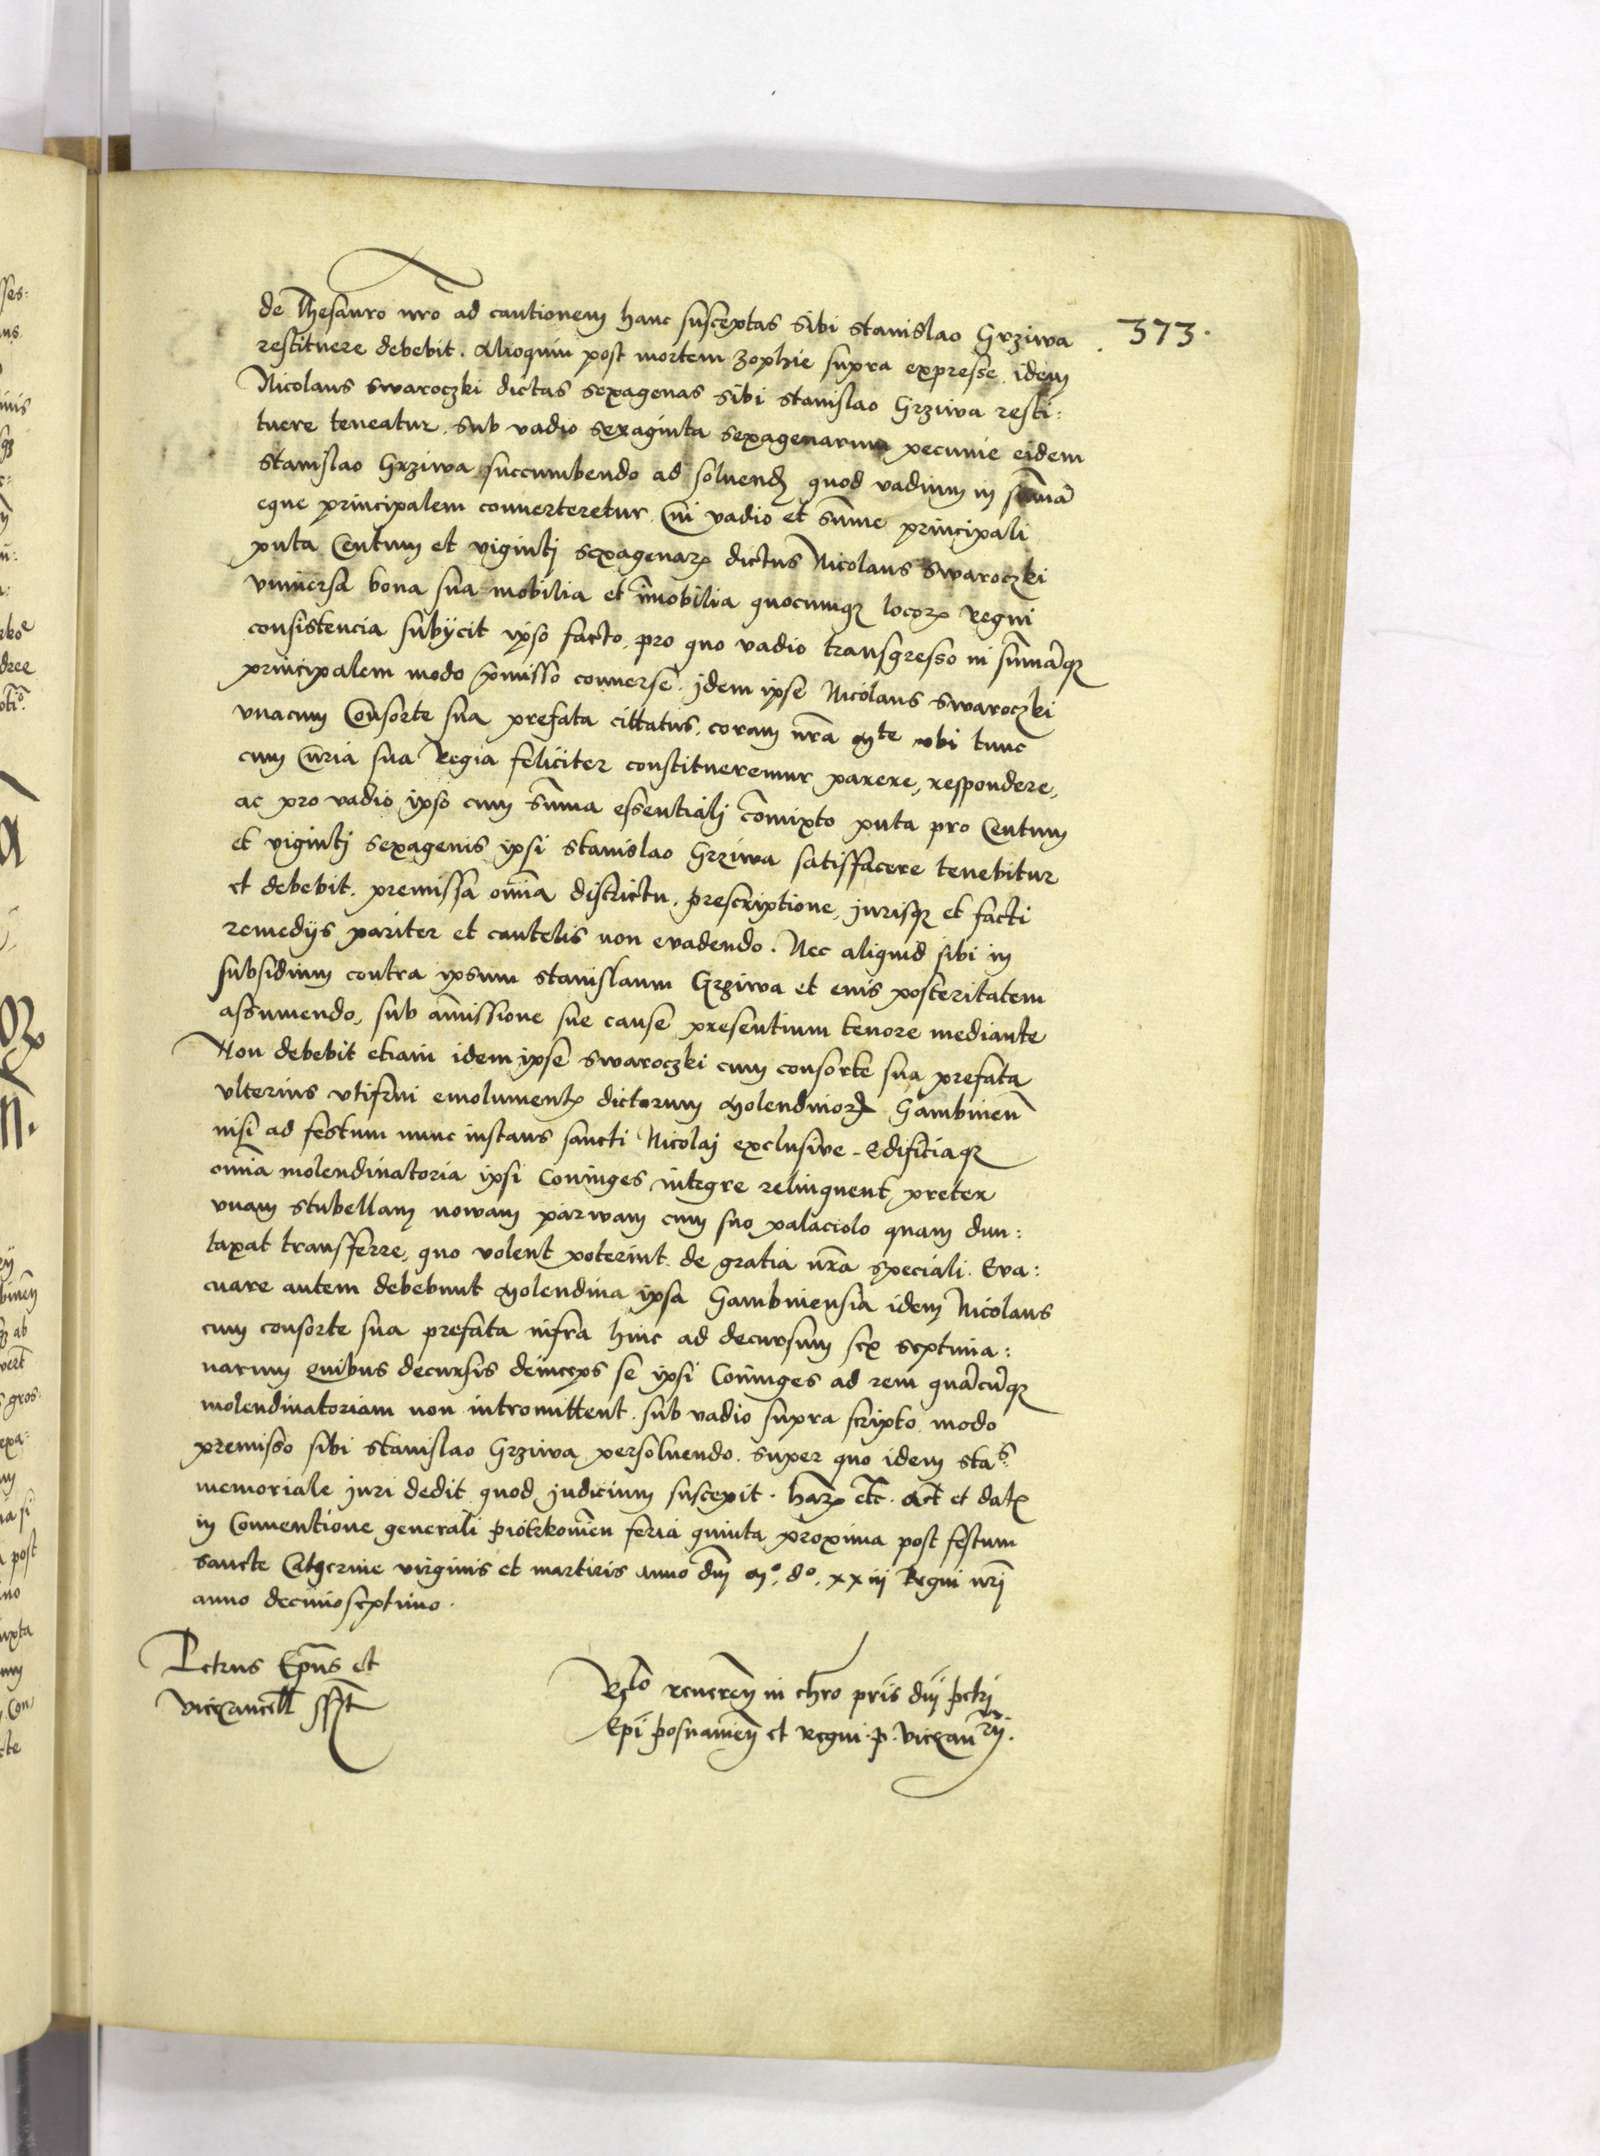 373.
de Thesauro nr̄o ad cautionem hanc susceptas sibi Stanislao Grziwa
restituere debebit. Alioquin post mortem Zophie supra expresse idem
Nicolaus Swaroczki dictas sexagenas sibi Stanislao Grziwa resti:
tuere teneatur. sub vadio sexaginta sexagenarum pecunie eidem
Stanislao Grziwa succumbendo ad soluend quod vadium in sum̄a
eque principalem conuerteretur. Cui vadio et sum̄e principali
puta Centum et viginti sexagenarꝝ dictus Nicolaus Swaroczki
vniuersa bona sua mobilia et im̄obilia quocumqꝫ locorꝝ Regni
consistencia subijcit ipso facto. pro quo vadio transgresso in sum̄aqꝫ
principalem modo p̄misso conuerse. idem ipse Nicolaus Swaroczki
vnacum Consorte sua prefata cittatus. coram nr̄a Mte vbi tunc
cum Curia sua Regia feliciter constitueremur parere, respondere,
ac pro vadio ipso cum sum̄a essentialj com̄ixto puta pro Centum
et vigintj sexagenis ipsi Stanislao Grziwa satisfacere tenebitur
et debebit. premissa om̄ia districtu. prescriptione, jurisqꝫ et facti
remedijs pariter et cautelis non euadendo. Nec aliquid sibi in
subsidium contra ipsum Stanislaum Grziwa et euis posteritatem
assumendo, sub am̄issione sue cause presentium tenore mediante
Non debebit etiam idem ipse Swaroczki cum consorte sua prefata
vlterius vtifrui emolumentꝭ dictorum Molendinorꝝ Gambinen̄
nisi ad festum nunc instans sancti Nicolaj exclusive. Edificiaqꝫ
om̄ia molendinatoria ipsi Coniuges integre relinquent preter
vnam stubellam nowam parwam cum suo palaciolo quam dun:
taxat transferre, quo volent poterint. de gratia nr̄a speciali. Eva:
cuare autem debebunt Molendina ipsa Gambinensia idem Nicolaus
cum consorte sua prefata infra hinc ad decursum sex septima:
narum Quibus decursis deinceps se ipsi Coniuges ad rem quācūqꝫ
molendinatoriam non intromittent. sub vadio supra scripto modo
premisso sibi Stanislao Grziwa persoluendo. super quo idem Stas
memoriale juri dedit quod judicium suscepit. harꝝ etc. Act et datꝭ
in Conuentione generali Piotrkowien̄ feria quinta proxima post festum
sancte Catherine virginis et martiris anno dn̄j Mo. do. xxiij Regni nr̄j
anno decimoseptimo.
Petrus Ep̄us et
Vicecancell sst
Rlo reueren in chro pr̄is dn̄j petrj
Ep̄i posnanien̄ et Regni. p. vicecanrij.